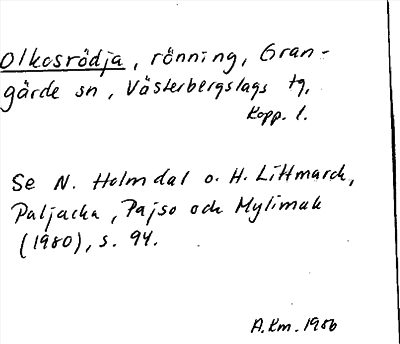 Olkosrödja, rönning, Gran-
gärde sn, Västerbergslags tg,
Kopp. l.
Se N. Holmdal o. H. Littmarck,
Paljacka, Pajso och Mylimak
(1980), s. 94.
A.Km. 1986